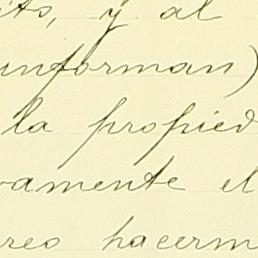 its, y al
informan)
la propied
vamente el
reo hacerm